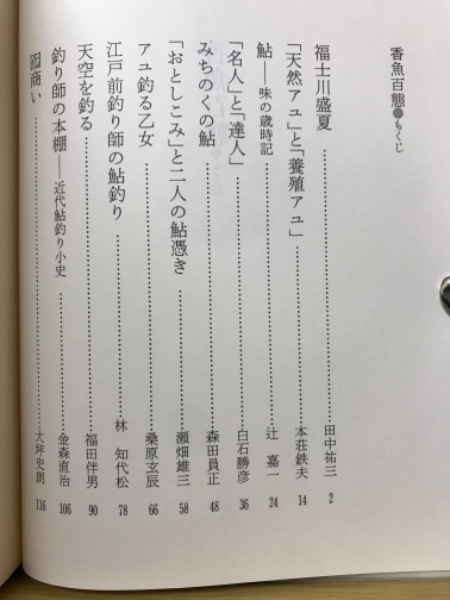 香魚百態●もくじ
福士川盛夏 田中祐三 2
「天然アユ」と「養殖アユ」 本荘鉄夫 14
鮎――味の歳時記 辻 嘉一 24
「名人」と「達人」 白石勝彦 36
みちのくの鮎 森田員正 48
「おとしこみ」と二人の鮎憑き 瀬畑雄三 58
アユ釣る乙女 桑原玄辰 66
江戸前釣り師の鮎釣り 林 知代松 78
天空を釣る 福田伴男 90
釣り師の本棚――近代鮎釣り小史 金森直治 106
商い 大坪史朗 116